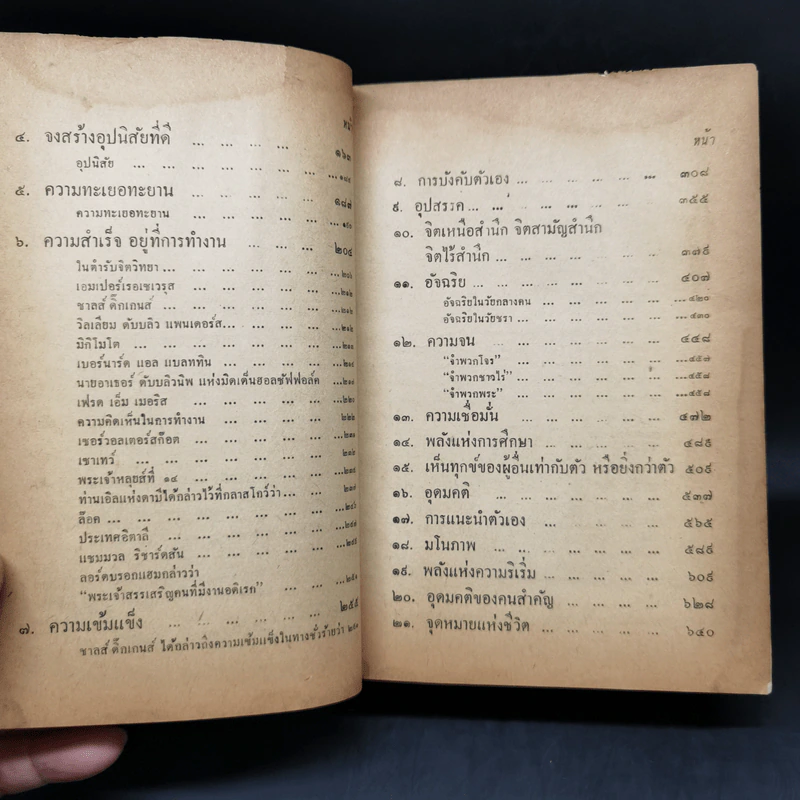 หน้า
๔. จงสร้างอุปนิสัยที่ดี ... ... ... ... ๑๖๓
อุปนิสัย ... ... ... ... ... ... ๑๘๔
๕. ความทะเยอทะยาน ... ... ... ... ๑๘๗
ความทะเยอทะยาน ... ... ... ... ...
๖. ความสำเร็จ อยู่ที่การทำงาน ... ... ... ๒๐๔
ในตำรับจิตวิทยา ... ... ... ... ... ๒๐๖
เอมเปอร์เรอเซเวรุส ... ... ... ... ... ๒๑๒
ชาลส์ ดิ๊กเกนส์ ... ... ... ... ... ๒๑๒
วิลเลียม ดับบลิว แพนเดอร์ส... ... ... ... ๒๑๒
มิกิโมโต ... ... ... ... ... ...
เบอร์นาร์ด แอล แบลททิน ... ... ... ...
นายอาเธอร์ ดับบลิวนิพ แห่งมิดเด็นฮอลซัฟฟอล์ค
เฟรด เอ็ม เมอริส ... ... ... ... ...
ความคิดเห็นในการทำงาน ... ... ... ... ๒๒๒
เซอร์วอลเตอร์สก๊อต ... ... ... ... ...
เชาเทว์ ... ... ... ... ... ...
พระเจ้าหลุยส์ที่ ๑๔ ... ... ... ... ...
ท่านเอิลแห่งดาบีได้กล่าวไว้ที่กลาสโกว์ว่า ... ...
ล๊อค ... ... ... ... ... ...
ประเทศอิตาลี ... ... ... ... ...
แซมมวล ริชาร์ตสัน ... ... ... ... ...
ลอร์ดบรอกแฮมกล่าวว่า
“พระเจ้าสรรเสริญคนที่มีงานอดิเรก” ... ... ...
๗. ความเข้มแข็ง ... ... ... ... ๒๕๕
ชาลส์ ดิ๊กเกนส์ ได้กล่าวถึงความเข้มแข็งในทางชั่วร้ายว่า
หน้า
๘. การบังคับตัวเอง ... ... ... ... ... ๓๐๘
๙. อุปสรรค ... ... ... ... ... ๓๕๕
๑๐. จิตเหนือสำนึก จิตสามัญสำนึก
จิตไร้สำนึก ... ... ... ... ๓๗๙
๑๑. อัจฉริย ... ... ... ... ... ๔๐๗
อัจฉริยในวัยกลางคน ... ... ... ... ...๔๒๐
อัจฉริยในวัยชรา ... ... ... ... ...๔๓๐
๑๒. ความจน ... ... ... ... ... ๔๔๘
“จำพวกโจร” ... ... ... ... ...๔๕๗
“จำพวกชาวไร่” ... ... ... ... ...๔๕๘
“จำพวกพระ” ... ... ... ... ...๔๕๘
๑๓. ความเชื่อมั่น ... ... ... ... ๔๗๒
๑๔. พลังแห่งการศึกษา ... ... ... ๔๘๕
๑๕. เห็นทุกข์ของผู้อื่นเท่ากับตัว หรือยิ่งกว่าตัว ๕๐๙
๑๖. อุดมคติ ... ... ... ... ... ๕๓๗
๑๗. การแนะนำตัวเอง ... ... ... ... ๕๖๕
๑๘. มโนภาพ ... ... ... ... ... ๕๘๙
๑๙. พลังแห่งความริเริ่ม ... ... ... ๖๐๙
๒๐. อุดมคติของคนสำคัญ ... ... ... ๖๒๘
๒๑. จุดหมายแห่งชีวิต ... ... ... ... ๖๔๐